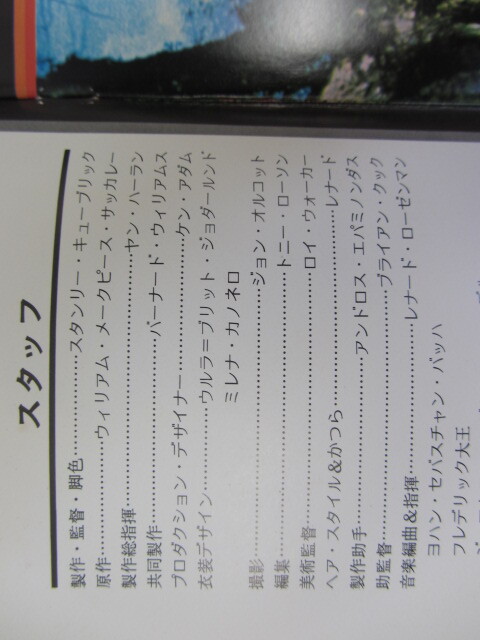 スタッフ
製作・監督・脚色……………スタンリー・キューブリック
原作………………ウィリアム・メークピース・サッカレー
製作総指揮………………………………ヤン・ハーラン
共同製作…………………………バーナード・ウィリアムス
プロダクション・デザイナー………………ケン・アダム
衣装デザイン…………ウルラ＝ブリット・ジョダールンド
ミレナ・カノネロ
撮影………………………………………ジョン・オルコット
編集…………………………………………トニー・ローソン
美術監督……………………………………ロイ・ウォーカー
ヘア・スタイル&かつら……………………………レナード
製作助手…………………………アンドロス・エパミノンダス
助監督……………………………………ブライアン・クック
音楽編曲&指揮………………………レナード・ローゼンマン
ヨハン・セバスチャン・バッハ
フレデリック大王